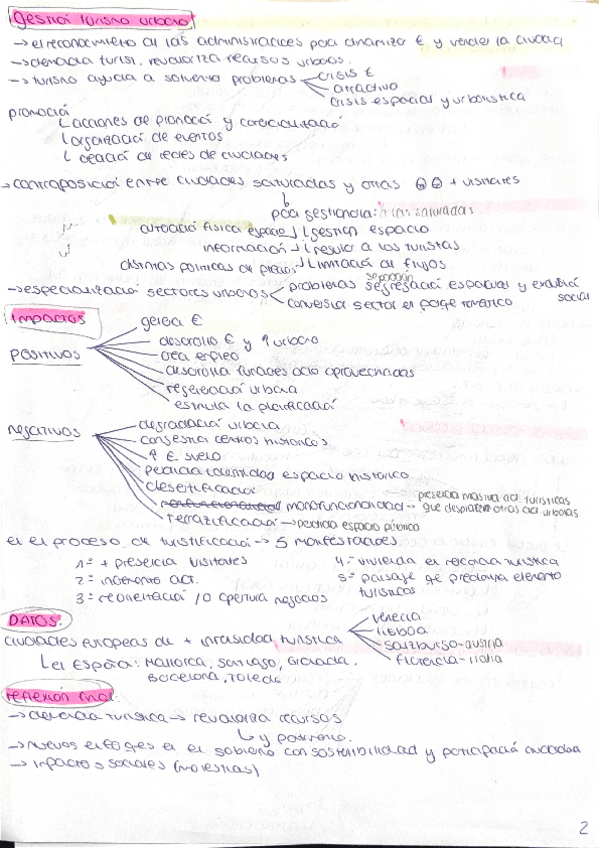 gestión turismo urbano
→ el reconocimiento de las administraciones para dinamizar € y vender la ciudad
→ demanda turist. revaloriza recursos urbanos.
→ turismo ayuda a solventar problemas
crisis €
atractivo
crisis espacial y urbanística
promoción
↳ acciones de promoción y comercialización
↳ organización de eventos
↳ creación de redes de ciudades
→ contraposición entre ciudades saturadas y otras + visitantes
para gestionar a las saturadas
actuación física espacio
↳ gestión espacio
información
↳ regular a los turistas
distintas políticas de precios
↳ limitación de flujos
separación
→ especialización sectores urbanos
problemas segregación espacial y exclusión social
conversión sector en parque temático
impactos
positivos
genera €
desarrollo € y urbano
crea empleo
desarrolla funciones ocio aprovechadas
regeneración urbana
estimula la planificación
negativos
degradación urbana
congestión centros históricos
↑ € suelo
pérdida identidad espacio histórico
monofuncionalidad → presencia masiva act. turísticas que desplazan otras act urbanas
→ pérdida espacio público
en el proceso de turistificación → 5 manifestaciones
1= + presencia visitantes
2= incremento act.
3= reorientación /o apertura negocios
4= vivienda en renta turística
5= paisaje que predomina elemento turísticos
DATOS:
ciudades europeas de + intensidad turística
venecia
lisboa
salzburgo-austria
florencia-italia
↳ en España: Mallorca, Santiago, Granada, Barcelona, Toledo
reflexión final:
→ demanda turística → revaloriza recursos
↳ y patrimonio.
→ nuevos enfoques en el gobierno con sostenibilidad y participación ciudadana
→ impactos sociales (molestias)
2